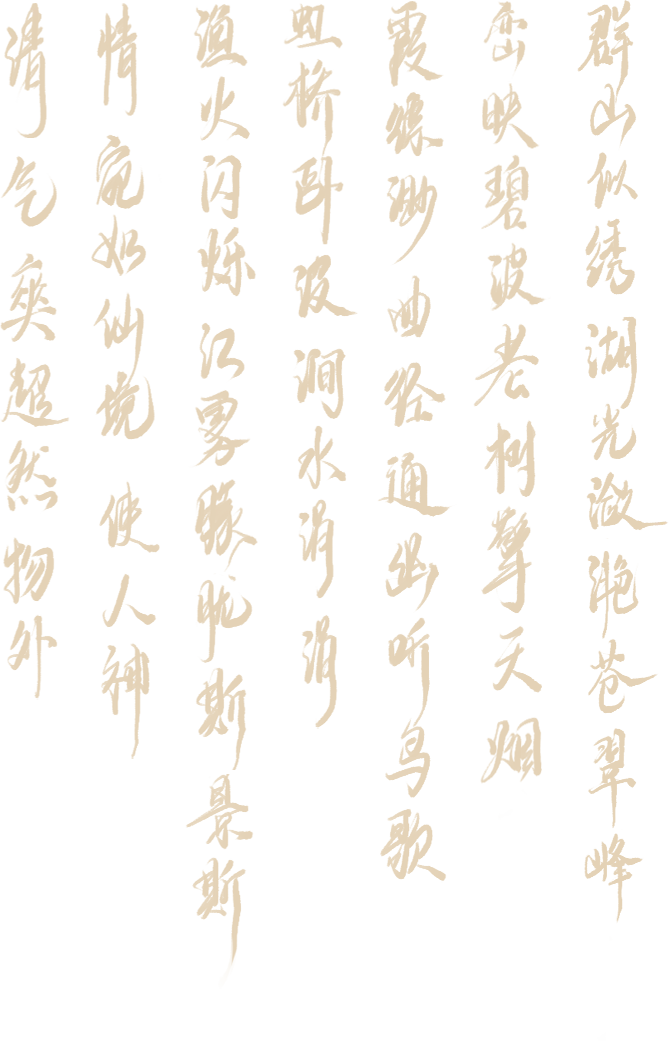 群山似绣湖光潋滟苍翠峰
峦映碧波老树擎天烟
霞缭渺曲径通幽听鸟歌
虹桥卧设涧水涓涓
渔火闪烁江雾朦胧斯景斯
情宛如仙境使人神
清气爽超然物外